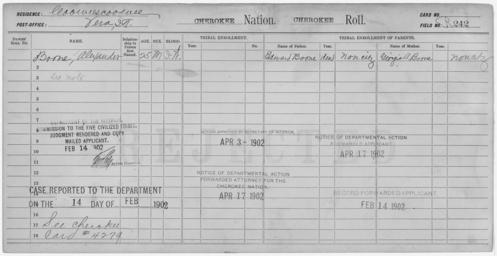 RESIDENCE: Cooweescoowee
POST-OFFICE: Vera I.T.
CHEROKEE Nation. CHEROKEE Roll.
CARD NO.
FIELD NO. R 242
Dawes' Roll No. NAME Relationship to Person first Named. AGE. SEX. BLOOD. TRIBAL ENROLLMENT. TRIBAL ENROLLMENT OF PARENTS.
Year. No. Name of Father. Year. Name of Mother. Year.
1 Boone, Alexander 25 M I.W. Edward Boone dead non citz Georgia Boone non citz
2
3 See note
4
5
6
7
DEPARTMENT OF THE INTERIOR,
COMMISSION TO THE FIVE CIVILIZED TRIBES.
JUDGMENT RENDERED AND COPY
MAILED APPLICANT.
FEB 14 1902
REJECTED
ACTION APPROVED BY SECRETARY OF INTERIOR.
APR 3 - 1902
NOTICE OF DEPARTMENTAL ACTION
FORWARDED APPLICANT.
APR 17 1902
NOTICE OF DEPARTMENTAL ACTION
FORWARDED ATTORNEY FOR THE
CHEROKEE NATION.
APR 17 1902
RECORD FORWARDED APPLICANT.
FEB 14 1902
CASE REPORTED TO THE DEPARTMENT
ON THE 14 DAY OF FEB 1902
15 See Cherokee
16 Card #4279
17